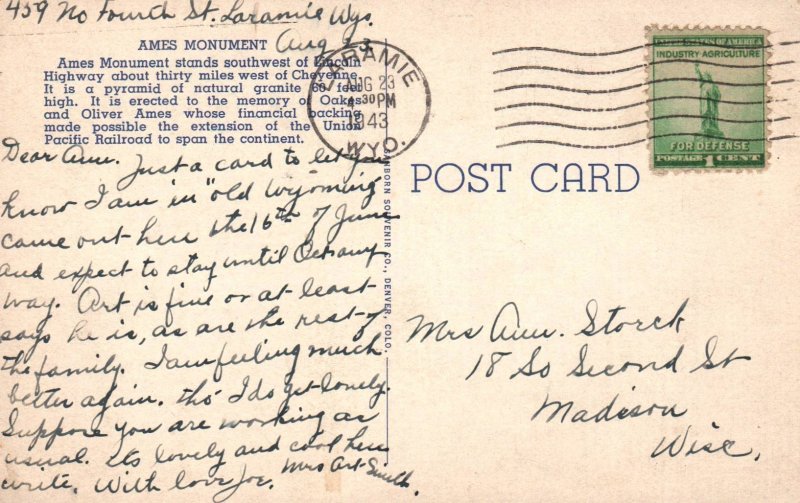 459 No Fourth St. Laramie Wyo.
Aug 23
AMES MONUMENT
Ames Monument stands southwest of Lincoln
Highway about thirty miles west of Cheyenne.
It is a pyramid of natural granite 60 feet
high. It is erected to the memory of Oakes
and Oliver Ames whose financial backing
made possible the extension of the Union
Pacific Railroad to span the continent.
Dear Ann. Just a card to let you
know I am in "old Wyoming
came out here the 16th of June
and expect to stay until Oct any
way. Art is fine or at least
says he is, as are the rest of
the family. I am feeling much
better again. tho' I do get lonely.
Suppose you are working as
usual. its lovely and cool here
write. With love Joe. Mrs Art Smith.
LARAMIE
AUG 23
4-30PM
1943
WYO.
SANBORN SOUVENIR CO., DENVER, COLO.
POST CARD
UNITED STATES OF AMERICA
INDUSTRY AGRICULTURE
FOR DEFENSE
POSTAGE 1 CENT
Mrs Ann. Storck
18 So Second St
Madison
Wisc.